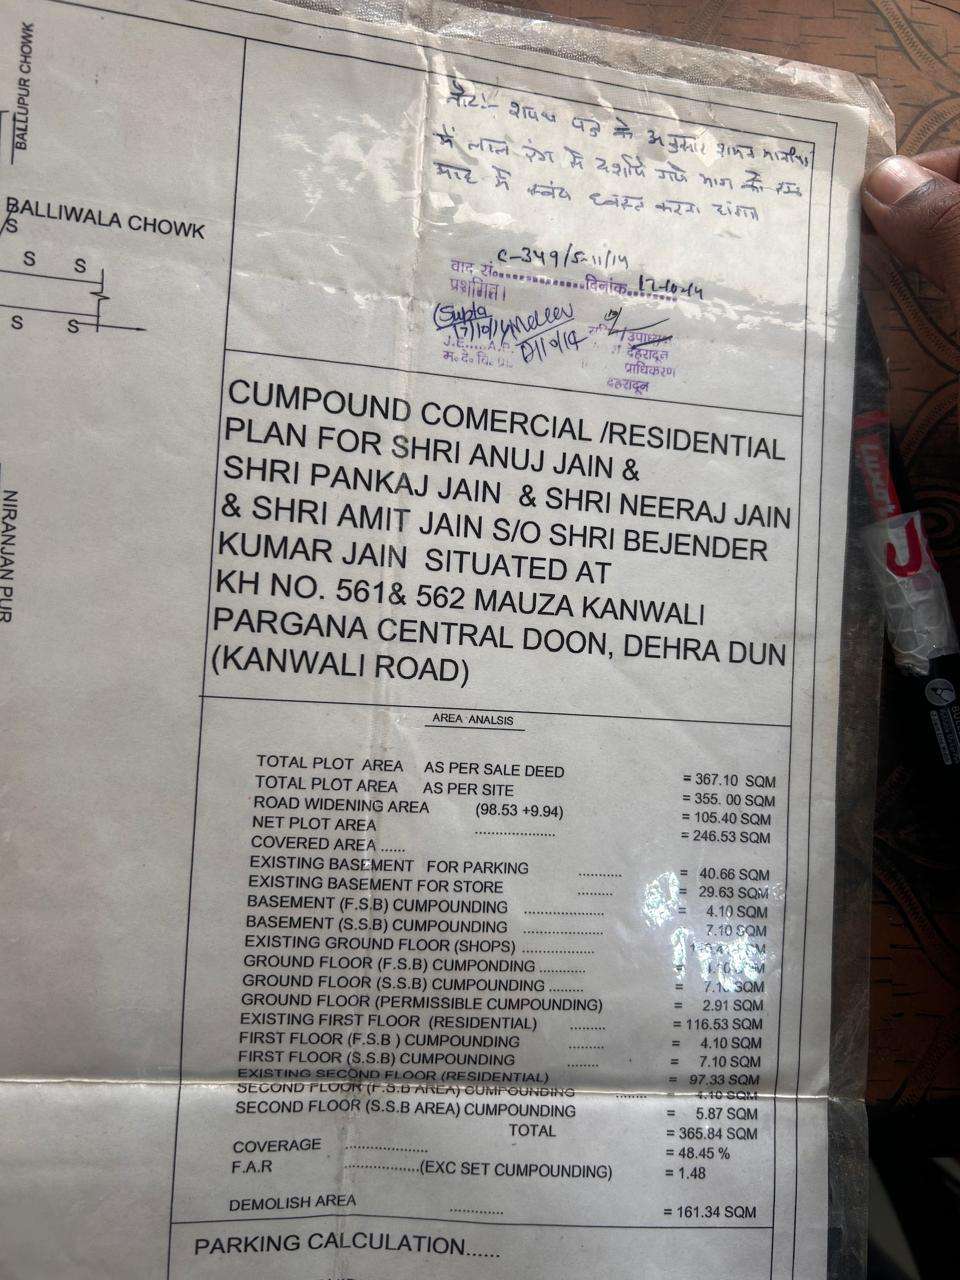 BALLUPUR CHOWK
BALLIWALA CHOWK
S
S S
S S
NIRANJAN PUR
नोट:- शपथ पत्र के अनुसार शमन मानचित्र
में लाल रंग में दर्शाये गये भाग को एक
माह में स्वंय ध्वस्त करना होगा
वाद सं. C-349/S-11/14 दिनांक 17-10-14
प्रशमित।
17/10/14
J.E..... A.E.
म. दे. वि. प्रा.
उपाध्यक्ष
देहरादून
प्राधिकरण
देहरादून
CUMPOUND COMERCIAL /RESIDENTIAL
PLAN FOR SHRI ANUJ JAIN &
SHRI PANKAJ JAIN & SHRI NEERAJ JAIN
& SHRI AMIT JAIN S/O SHRI BEJENDER
KUMAR JAIN SITUATED AT
KH NO. 561& 562 MAUZA KANWALI
PARGANA CENTRAL DOON, DEHRA DUN
(KANWALI ROAD)
AREA ANALSIS
TOTAL PLOT AREA AS PER SALE DEED = 367.10 SQM
TOTAL PLOT AREA AS PER SITE = 355. 00 SQM
ROAD WIDENING AREA (98.53 +9.94) = 105.40 SQM
NET PLOT AREA .................... = 246.53 SQM
COVERED AREA ......
EXISTING BASEMENT FOR PARKING ........... = 40.66 SQM
EXISTING BASEMENT FOR STORE ......... = 29.63 SQM
BASEMENT (F.S.B) CUMPOUNDING .................... = 4.10 SQM
BASEMENT (S.S.B) CUMPOUNDING .................... 7.10 SQM
EXISTING GROUND FLOOR (SHOPS) .................. SQM
GROUND FLOOR (F.S.B) CUMPONDING ............ = SQM
GROUND FLOOR (S.S.B) CUMPOUNDING ......... = 7.10 SQM
GROUND FLOOR (PERMISSIBLE CUMPOUNDING) = 2.91 SQM
EXISTING FIRST FLOOR (RESIDENTIAL) ......... = 116.53 SQM
FIRST FLOOR (F.S.B ) CUMPOUNDING ......... = 4.10 SQM
FIRST FLOOR (S.S.B) CUMPOUNDING ........ = 7.10 SQM
EXISTING SECOND FLOOR (RESIDENTIAL) = 97.33 SQM
SECOND FLOOR (F.S.B AREA) CUMPOUNDING ........ = 4.10 SQM
SECOND FLOOR (S.S.B AREA) CUMPOUNDING = 5.87 SQM
TOTAL = 365.84 SQM
COVERAGE ..................... = 48.45 %
F.A.R ...................(EXC SET CUMPOUNDING) = 1.48
DEMOLISH AREA .............. = 161.34 SQM
PARKING CALCULATION......